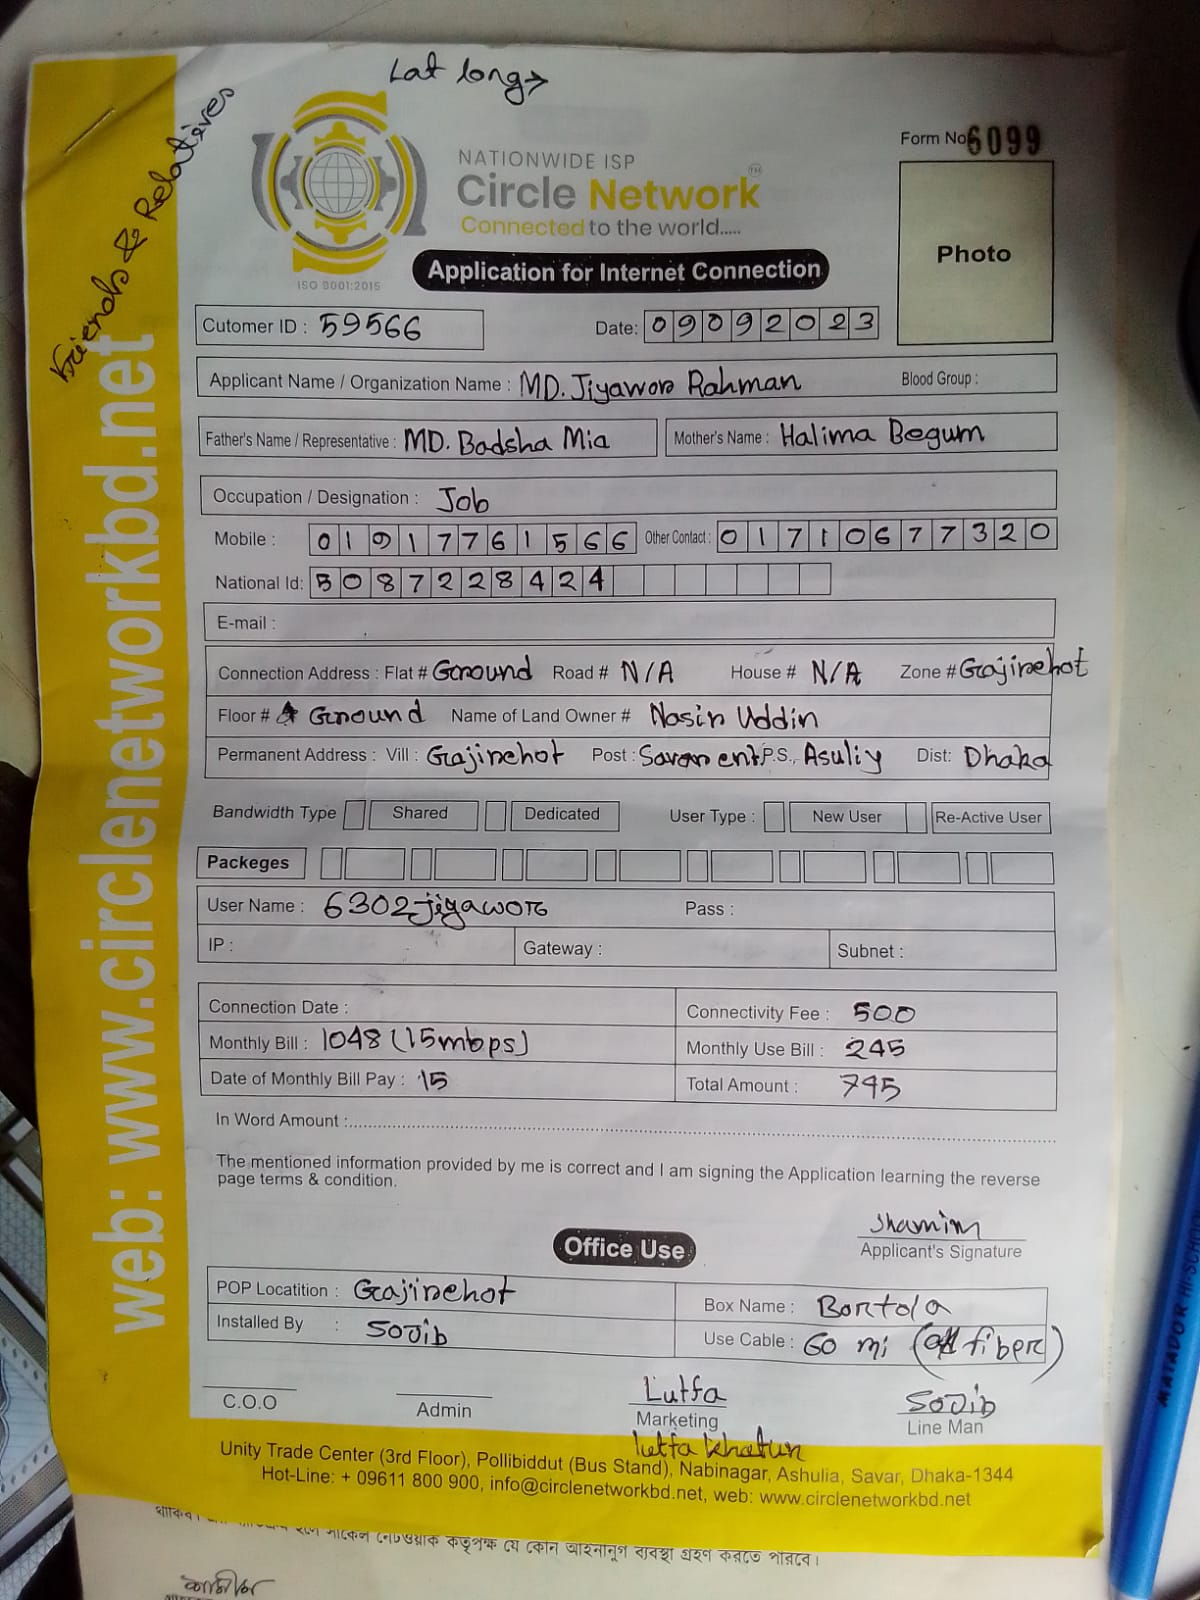 Lat long→
Friends & Relatives
Form No 6099
NATIONWIDE ISP
Circle Network TM
Connected to the world.....
ISO 9001:2015
Application for Internet Connection
Photo
Cutomer ID : 59566 Date: 09092023
Applicant Name / Organization Name : MD. Jiyawor Rahman Blood Group :
Father's Name / Representative : MD. Badsha Mia Mother's Name : Halima Begum
Occupation / Designation : Job
Mobile : 01917761566 Other Contact : 01710677320
National Id: 5087228424
E-mail :
Connection Address : Flat # Ground Road # N/A House # N/A Zone # Gajirchot
Floor # Ground Name of Land Owner # Nasir Uddin
Permanent Address : Vill : Gajirchot Post : Savar ent P.S., Asuliy Dist: Dhaka
Bandwidth Type Shared Dedicated User Type : New User Re-Active User
Packeges
User Name : 6302jiyawor Pass :
IP : Gateway : Subnet :
Connection Date : Connectivity Fee : 500
Monthly Bill : 1048 (15mbps) Monthly Use Bill : 245
Date of Monthly Bill Pay : 15 Total Amount : 745
In Word Amount :
The mentioned information provided by me is correct and I am signing the Application learning the reverse
page terms & condition.
Shamim
Applicant's Signature
Office Use
POP Locatition : Gajirchot Box Name : Bortola
Installed By : Sojib Use Cable : 60 mi (fiber)
C.O.O Admin Lutfa Marketing Sojib Line Man
lutfa khatun
Unity Trade Center (3rd Floor), Pollibiddut (Bus Stand), Nabinagar, Ashulia, Savar, Dhaka-1344
Hot-Line: + 09611 800 900, info@circlenetworkbd.net, web: www.circlenetworkbd.net
web: www.circlenetworkbd.net
সার্কেল নেটওয়ার্ক কর্তৃপক্ষ যে কোন আইনানুগ ব্যবস্থা গ্রহণ করতে পারবে।
MATADOR HI-SCHOOL